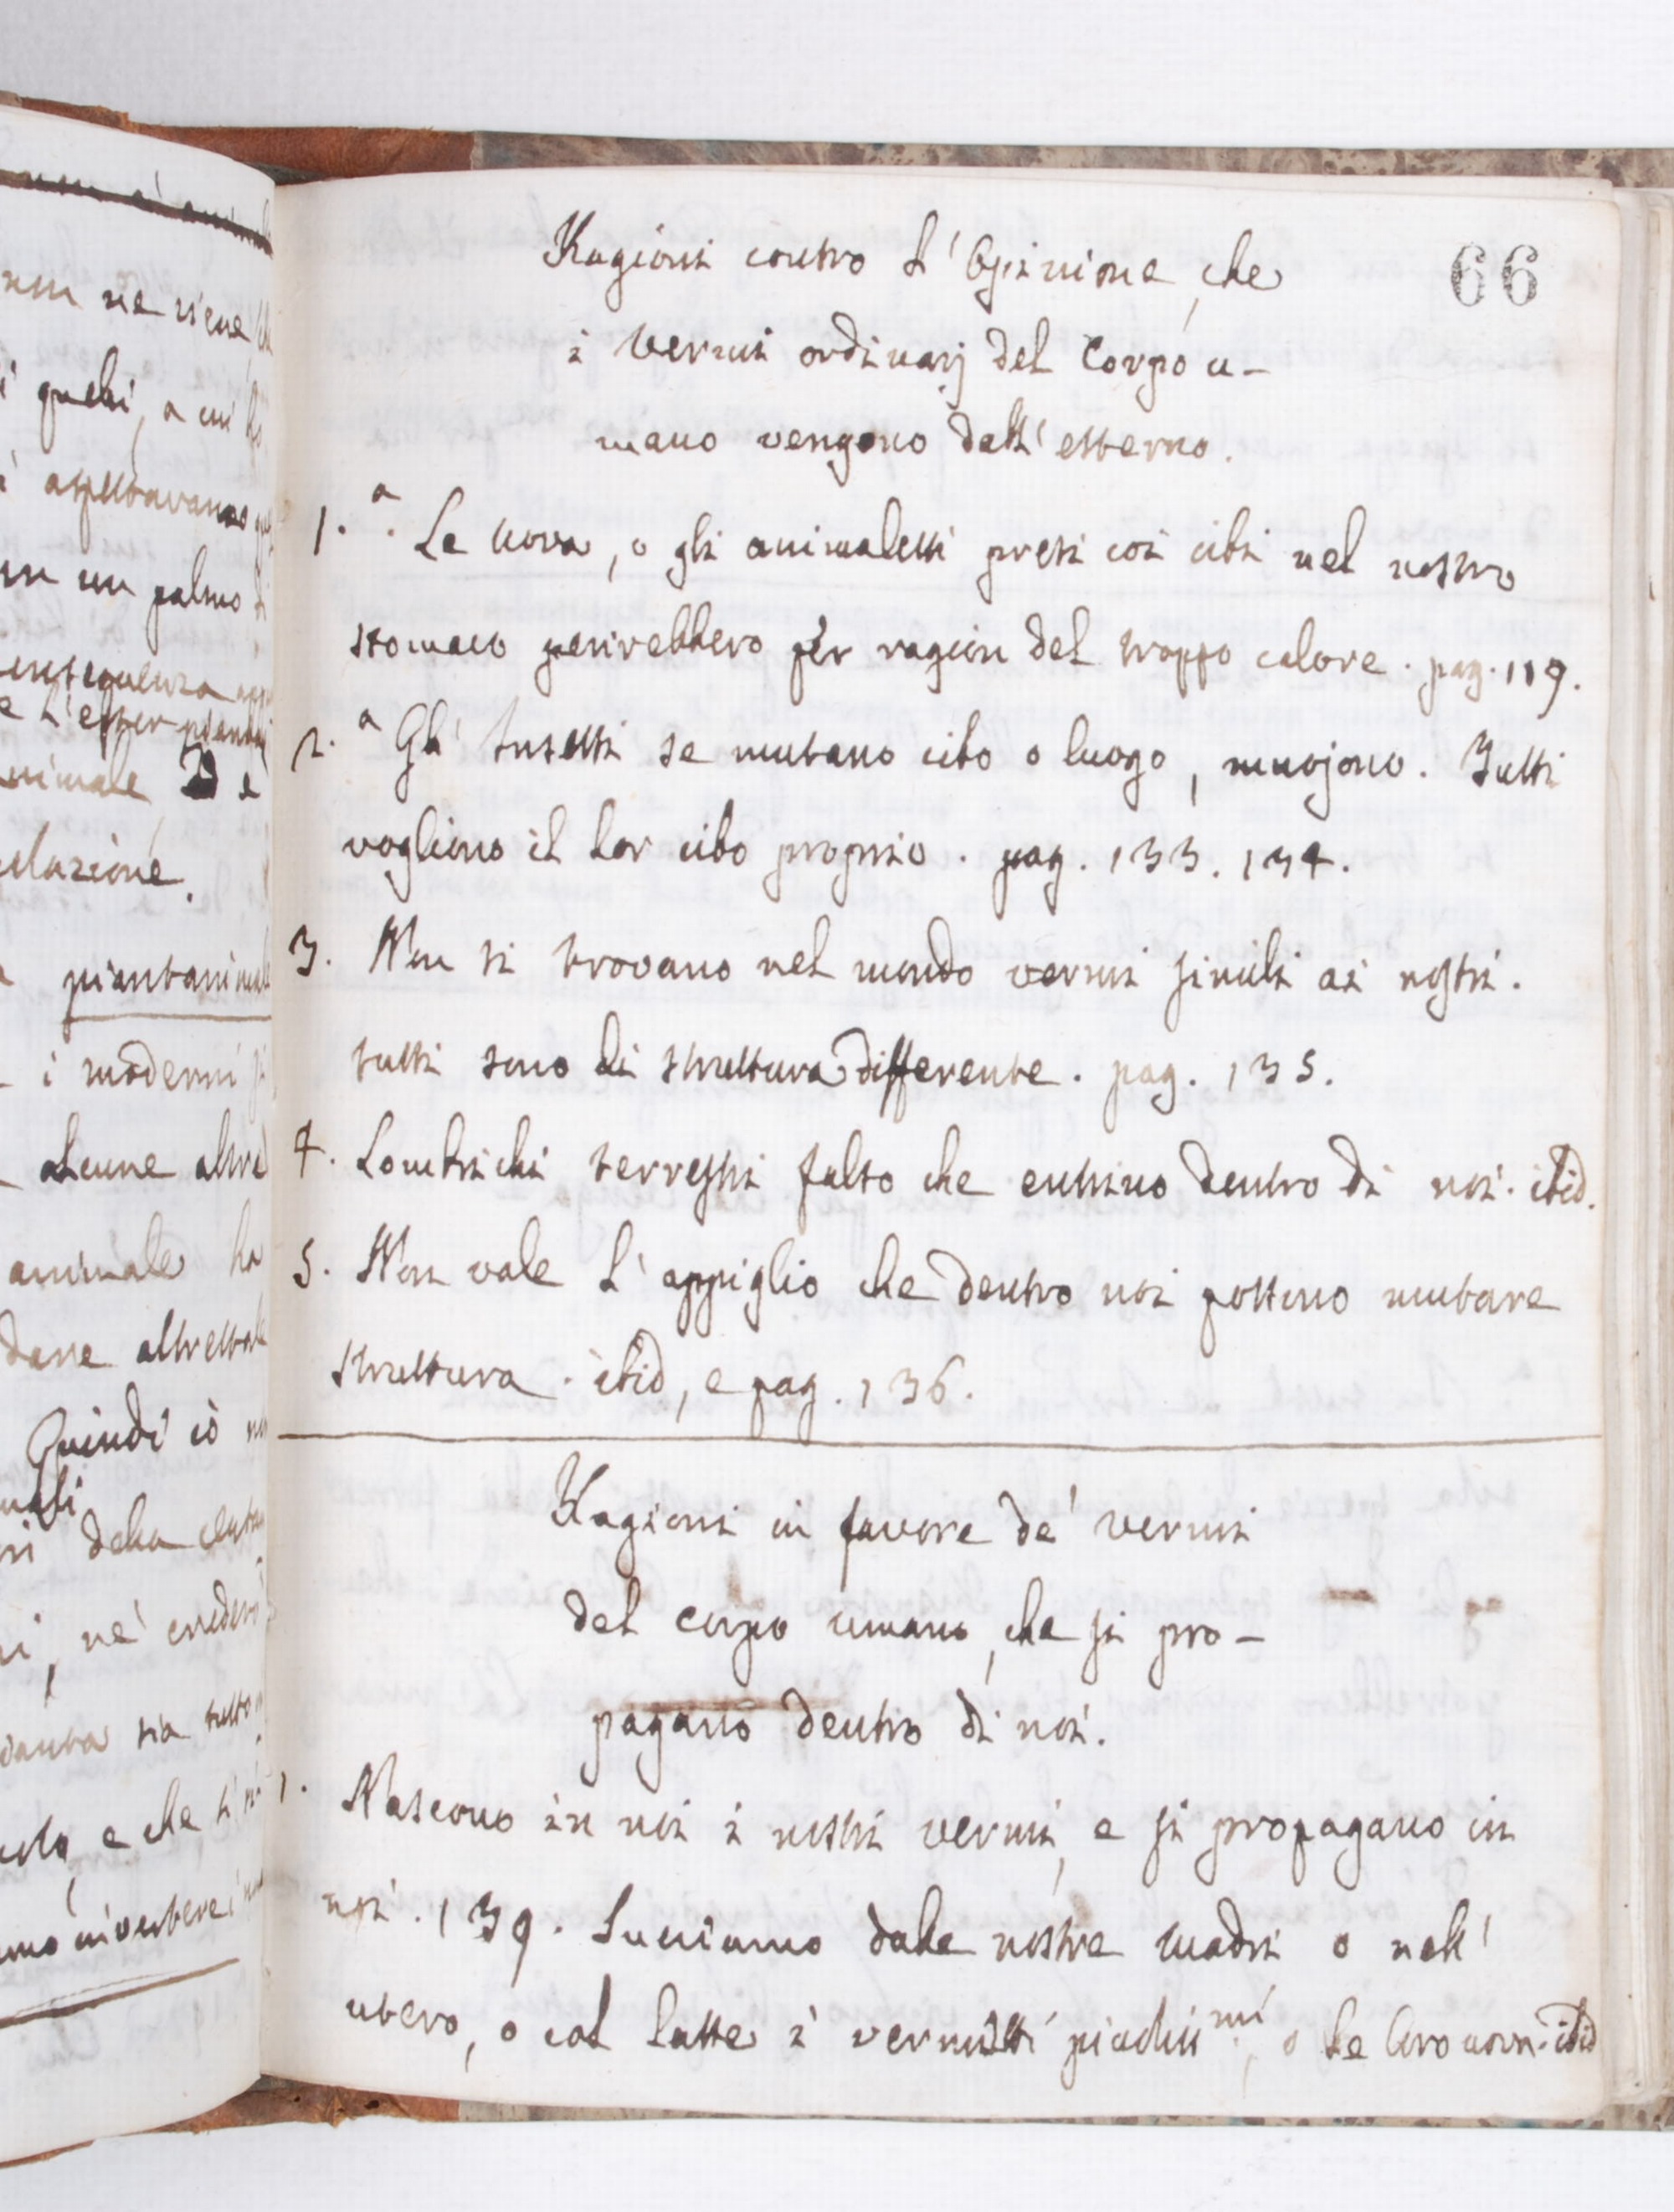 66
Ragioni contro l'Opinione, che
i Vermi ordinarj del Corpo u-
mano vengono dall'esterno.
1.a Le Uova, o gli animaletti presi coi cibi nel nostro
stomaco perirebbero per ragion del troppo calore. pag. 119.
2.a Gl'Insetti se mutano cibo o luogo, muojono. Tutti
vogliono il lor cibo proprio. pag. 133. 134.
3. Non si trovano nel mondo vermi simili ai nostri.
tutti sono di struttura differente. pag. 135.
4. Lombrichi terrestri falso che entrino dentro di noi. ibid.
5. Non vale l'appiglio che dentro noi possino mutare
struttura. ibid, e pag. 136.
Ragioni in favore de' vermi
del corpo umano, che si pro-
pagano dentro di noi.
1. Nascono in noi i nostri vermi, e si propagano in
noi. 139. Succiamo dalle nostre Madri o nell'
utero, o col latte i vermetti picciolissimi, o le loro uova. ibid
non ne viene
palmo
animale
piantanimale
i moderni
alcune altre
animale ha
Quindi io
della
né crederò
sia tutto
e che si